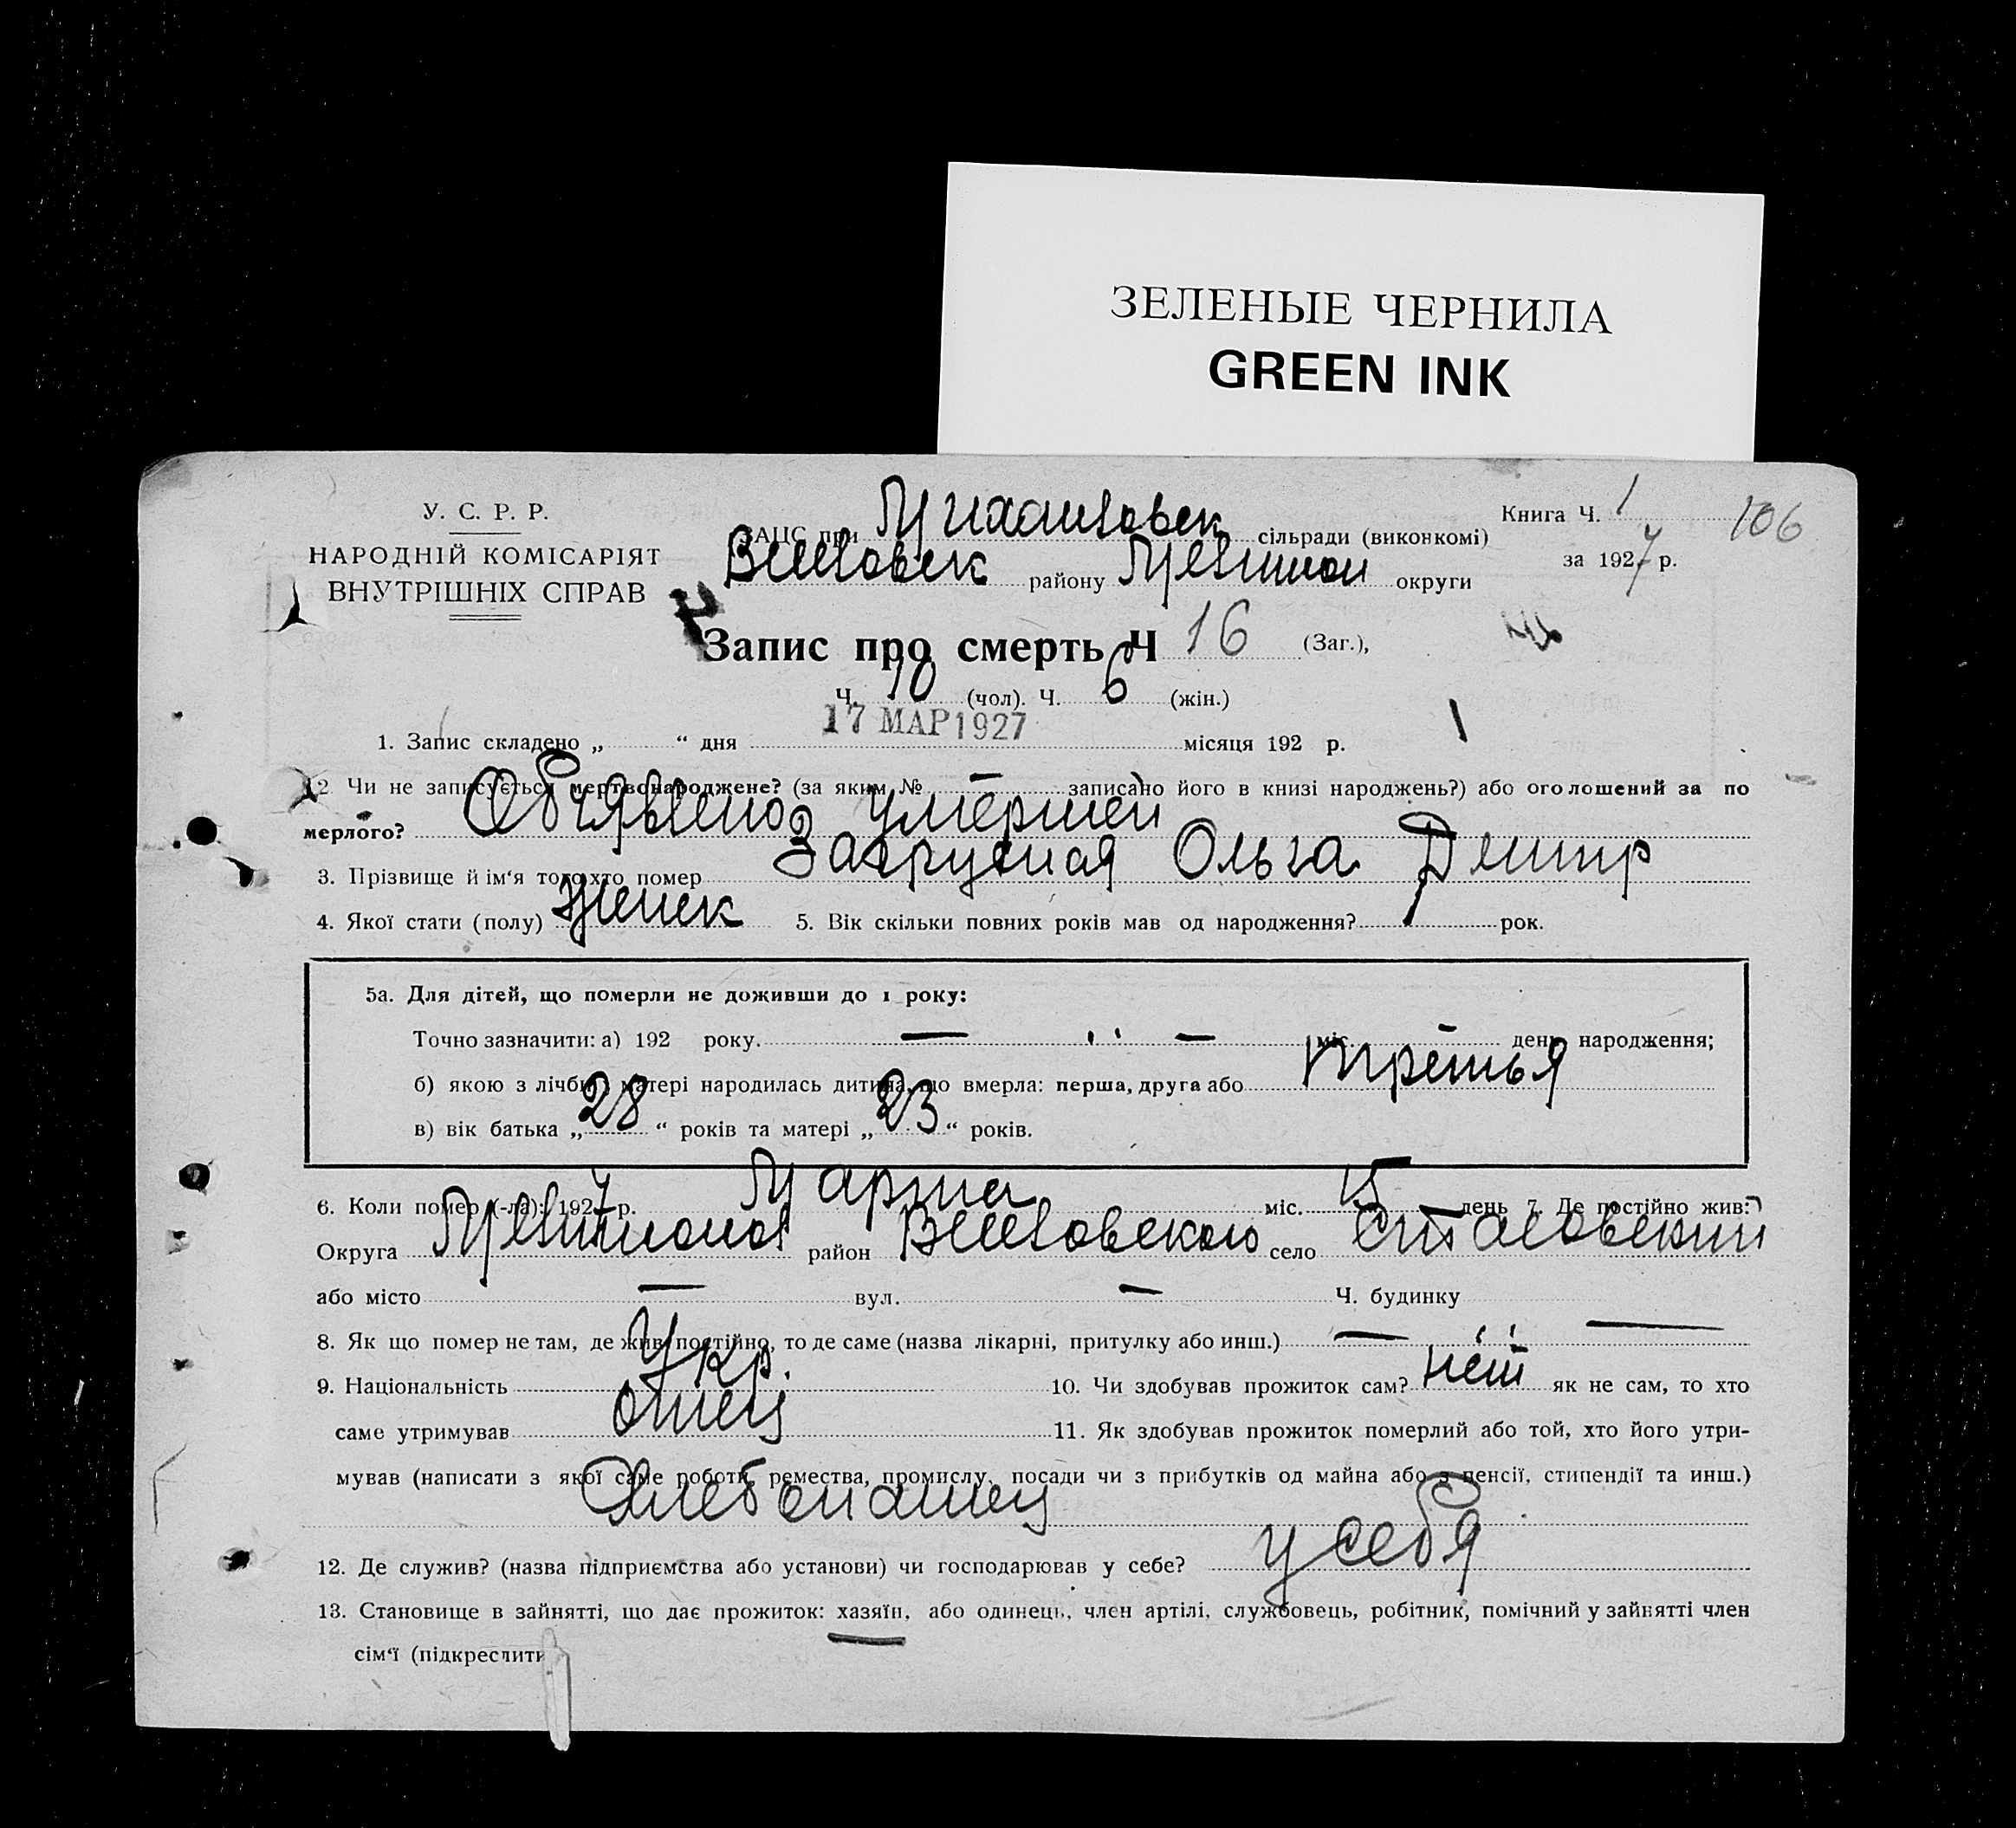 ЗЕЛЕНЫЕ ЧЕРНИЛА
GREEN INK
У. С. Р. Р.
НАРОДНІЙ КОМІСАРІЯТ
ВНУТРІШНІХ СПРАВ
ЗАЦС при Михайловск сільради (виконкомі)
району округи
Книга Ч. 1 106
за 1927 р.
Запис про смерть Ч 16 (Заг.),
Ч. 10 (чол). Ч. 6 (жін.)
17 МАР 1927
1. Запис складено „ “ дня місяця 192 р.
2. Чи не записується мертвонароджене? (за яким № — записано його в книзі народжень?) або оголошений за по
мерлого? Объявлено умершей
3. Прізвище й ім‘я того хто помер Ольга Дмитр
4. Якої стати (полу) женск 5. Вік скільки повних років мав од народження? рок.
5а. Для дітей, що померли не доживши до 1 року:
Точно зазначити: а) 192 року. — " — міс. день народження;
б) якою з лічби у матері народилась дитина, що вмерла: перша, друга або третья
в) вік батька „ 28 “ років та матері „ 23 “ років.
6. Коли помер (-ла): 1927 р. Марта міс. 15 день 7. Де постійно жив?
Округа район село
або місто — вул. — Ч. будинку
8. Як що помер не там, де жив постійно, то де саме (назва лікарні, притулку або инш.) — " —
9. Національність Укр. 10. Чи здобував прожиток сам? нет як не сам, то хто
саме утримував отец 11. Як здобував прожиток померлий або той, хто його утри-
мував (написати з якої саме роботи, ремества, промислу, посади чи з прибутків од майна або з пенсії, стипендії та инш.)
Хлебопашец
12. Де служив? (назва підприємства або установи) чи господарював у себе? у себя
13. Становище в зайнятті, що дає прожиток: хазяїн, або одинець, член артілі, службовець, робітник, помічний у зайнятті член
сім‘ї (підкреслити